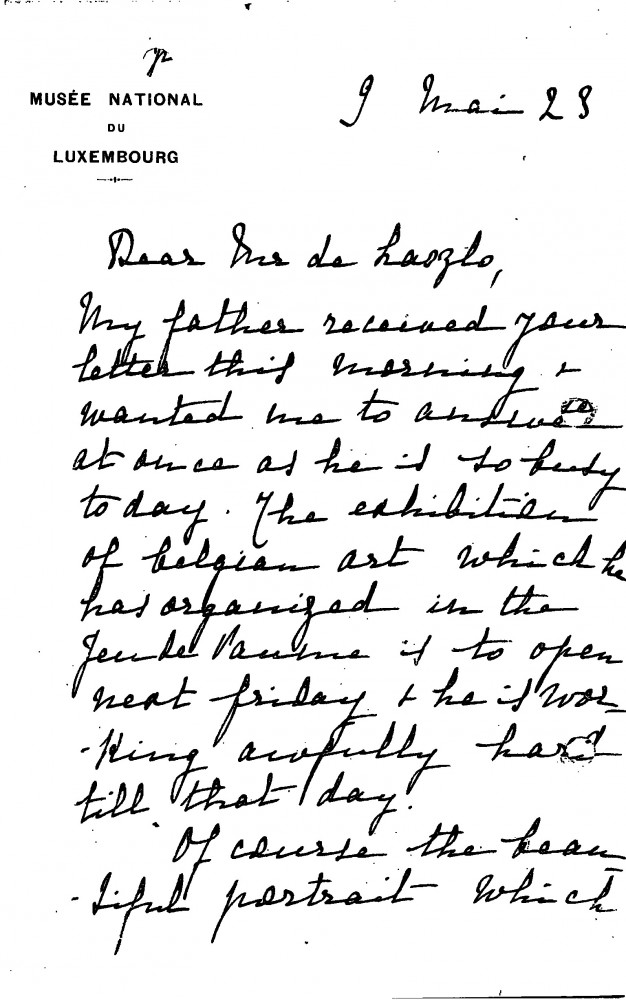 MUSÉE NATIONAL
DU
LUXEMBOURG
9 Mai 23
Dear Mr de Laszlo,
My father received your
letter this morning &
wanted me to answer
at once as he is so busy
today. The exhibition
of belgian art which he
has organized in the
Jeu de Paume is to open
next friday & he is wor-
-king awfully hard
till that day.
Of course the beau
-tiful portrait which